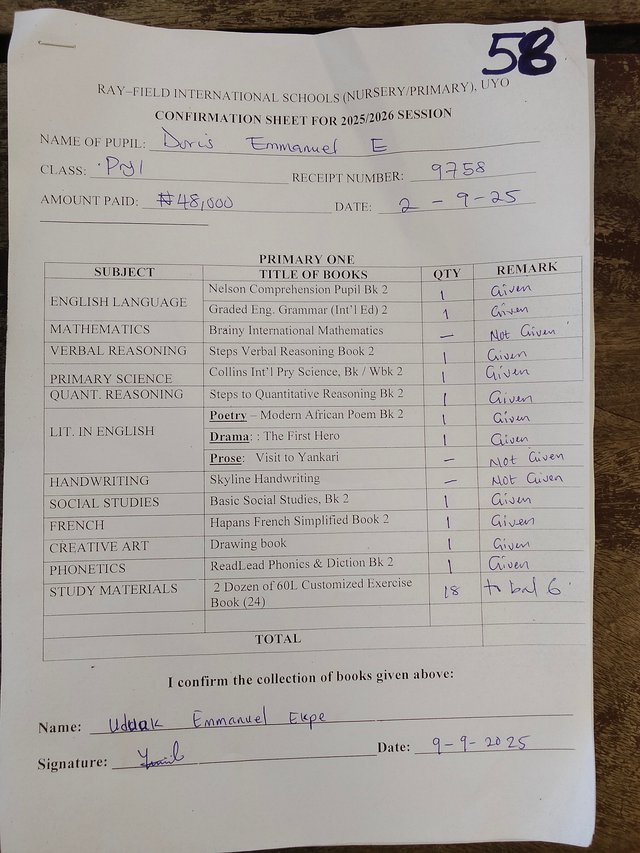 58
RAY–FIELD INTERNATIONAL SCHOOLS (NURSERY/PRIMARY), UYO
CONFIRMATION SHEET FOR 2025/2026 SESSION
NAME OF PUPIL: Doris Emmanuel E
CLASS: Pry1 RECEIPT NUMBER: 9758
AMOUNT PAID: ₦48,000 DATE: 2 - 9 - 25
PRIMARY ONE
SUBJECT TITLE OF BOOKS QTY REMARK
ENGLISH LANGUAGE Nelson Comprehension Pupil Bk 2 1 Given
Graded Eng. Grammar (Int'l Ed) 2 1 Given
MATHEMATICS Brainy International Mathematics — Not Given
VERBAL REASONING Steps Verbal Reasoning Book 2 1 Given
PRIMARY SCIENCE Collins Int'l Pry Science, Bk / Wbk 2 1 Given
QUANT. REASONING Steps to Quantitative Reasoning Bk 2 1 Given
LIT. IN ENGLISH Poetry – Modern African Poem Bk 2 1 Given
Drama: : The First Hero 1 Given
Prose: Visit to Yankari — Not Given
HANDWRITING Skyline Handwriting — Not Given
SOCIAL STUDIES Basic Social Studies, Bk 2 1 Given
FRENCH Hapans French Simplified Book 2 1 Given
CREATIVE ART Drawing book 1 Given
PHONETICS ReadLead Phonics & Diction Bk 2 1 Given
STUDY MATERIALS 2 Dozen of 60L Customized Exercise 18 to bal 6
Book (24)
TOTAL
I confirm the collection of books given above:
Name: Uduak Emmanuel Ekpe
Signature: Date: 9-9-2025